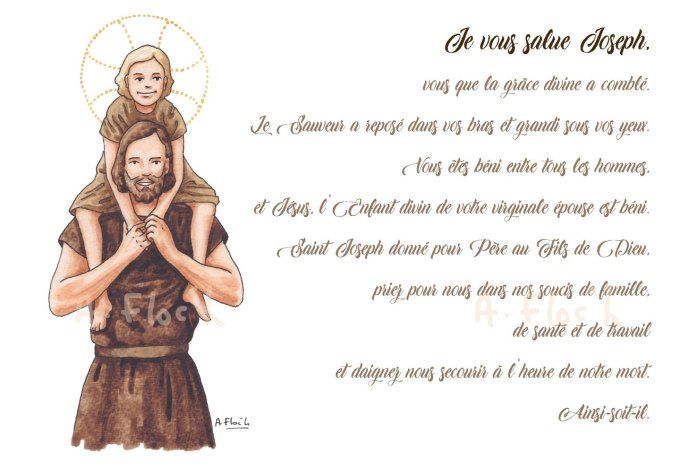 Je vous salue Joseph,
vous que la grâce divine a comblé.
Le Sauveur a reposé dans vos bras et grandi sous vos yeux.
Vous êtes béni entre tous les hommes,
et Jésus, l'Enfant divin de votre virginale épouse est béni.
Saint Joseph donné pour Père au Fils de Dieu,
priez pour nous dans nos soucis de famille,
de santé et de travail
et daignez nous secourir à l'heure de notre mort.
Ainsi-soit-il.
A. Floc'h
A. Floc'h
A Floc'h